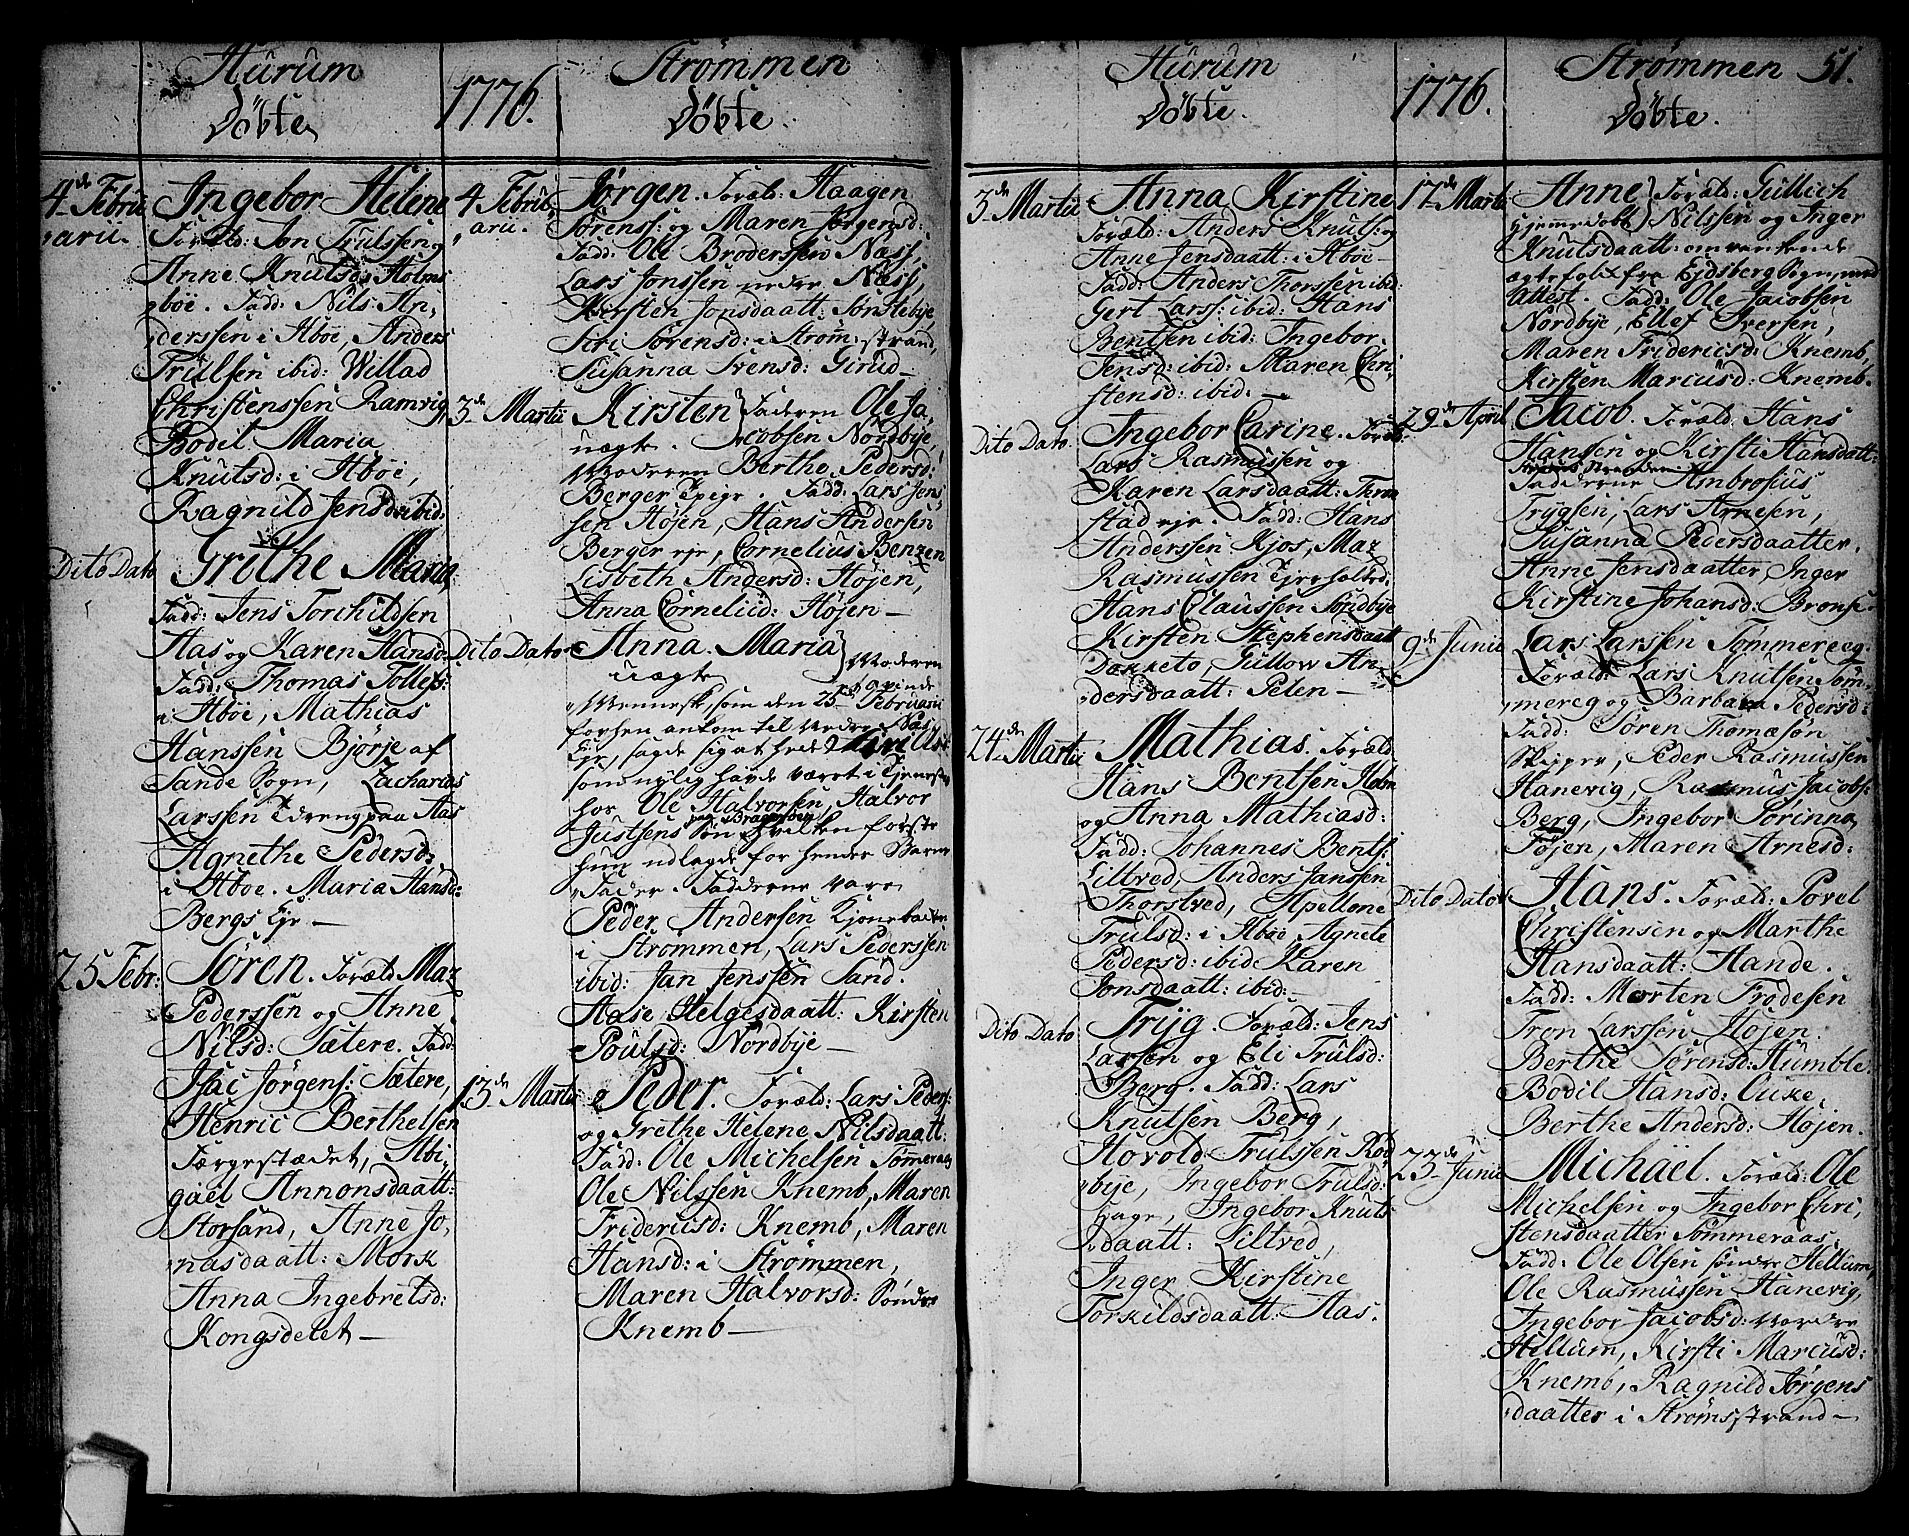 Hurum
Döbte
1776.
Strømmen
Döbte.
4de Febru
aru.
Ingebor Helene
Foræld: Jon Trulssen og
Anne Knutsd: Holms
boe. Fadd: Nils An,
derssen i Aboe, Anders
Trulsen ibid: Willad
Christenssen Ramvig,
Bodil Maria
Knutsd: i Aboe,
Ragnild Jensd: ibid:
Dito Dato
Grethe Maria,
Fadd: Jens Torchildsen
Aas og Karen Hansd:
Fadd: Thomas Tollefs:
i Aboe, Mathias
Hanssen Bjørje af
Sande Sogn, Zacharias
Larssen Tdreng paa Aas
Agnethe Pedersd:
i Aboe. Maria Hansd:
Bergs Eje –
25 Febr:
Søren. Foræld Maz
Pederssen og Anne
Nilsd: Sætere. Fadd:
Isac Jørgens: Sætere,
Henric Berthelsen
Færgestædet, Abi,
gael Annonsdaatt:
Storsand, Anne Jo,
nasdaatt: Mork
Anna Ingebretsd:
Kongsdelet –
4 Febru,
aru.
Jørgen. Foræld: Haagen
Sørenss: og Maren Jørgensd:
Fadd: Ole Broderssen Næss,
Lars Jonssen nedre Næss,
Kiersten Jonsdaatt: Tonstebye,
Siri Sørensd: i Strømstrand,
Susanna Svensd: Girud –
3de Martii
Kirsten } Faderen Ole Ja,
uægte. cobsen Nordbye,
Moderen Berthe Pedersd:
Berger Tpige. Fadd: Lars Jens,
sen Højen, Hans Andersen
Berger eje, Cornelius Benzen
Lisbeth Andersd: Højen,
Anna Corneliid: Højen –
Dito Dato
Anna Maria } Moderen
uægte
Menneske, som den 25de Februarii
forhen ankom til Nedre Næs
Eje, sagde sig at hede
som nylig havde været i Tjeneste
hos Ole Halvorsen, Halvor
paa Bragernes
Justsens Søn hvilken første
hun udlagde for hendes Barne
Fader. Fadderne vare
Peder Andersen
i Strømmen, Lars Pederssen
ibid: Jan Jenssen Sand.
Aase Helgesdaatt: Kirsten
Poulsd: Nordbye –
13de Martii
Peder. Foræld: Lars Peders:
og Grethe Helene Nilsdaatt:
Fadd: Ole Michelsen Sømeraas
Ole Nilssen Knemb, Maren
Fridericusd: Knemb, Maren
Hansd: i Strømmen,
Maren Halvorsd: Søndre
Knemb –
Hurum
Döbte.
1776.
Strømmen
Döbte.
51.
3de Martii
Anna Kirstine
Foræld: Anders Knuts: og
Anne Jensdaatt: i Aboe
Fadd: Anders Thorssen ibid:
Gert Larss: ibid: Hans
Bentsen ibid: Ingebor
Jensd: ibid: Maren Chri
stensd: ibid: –
Dito Dato.
Ingebor Carine. Foræld:
Lars Rasmussen og
Karen Larsdaatt: Thron
stad eje. Fadd: Hans
Anderssen Kjos, Maz
Rasmussen
Hans Claussen Søndbye
Kirsten Stephensdaatt
Dokketo, Gullow An
dersdaatt: Pelen –
24de Martii
Mathias. Foræld:
Hans Bentsen Holm
og Anna Mathiasd:
Fadd: Johannes Bents:
Liltved, Anders Janssen
Thorstved, Apellone
Trulsd: i Aboe Agnete
Pedersd: ibid: Karen
Jonsdaatt: ibid: –
Dito Dato
Tryg. Foræld: Jens
Larsen og Eli Trulsd:
Berg. Fadd: Lars
Knutsen Berg,
Hovold Trulssen Rød
bye, Ingebor Trulsd:
Hage, Ingebor Knuts
daatt: Liltved,
Inger Kirstine
Torkildsdaatt: Aas.
17de Martii
Anne } Foræld: Gullich
Hjemmedøbt } Nilssen og Inger
Knutsdaatt: omvankende
ægtefolk fra Eidsberg Sogn, med
Attest. Fadd: Ole Jacobsen
Nordbye, Ellef Iversen,
Maren Fridericusd: Knemb,
Kirsten Marcusd: Knemb.
29de April
Jacob. Foræld: Hans
Hansen og Kirsti Hansdatt:
Fadderne Ambrosius
Trygsen, Lars Arnesen,
Susanna Pedersdaatter.
Anne Jensdaatter Inger
Kirstine Johansd: Brønse
9de Junii
Lars Larssen Tømmereeg.
Foræld: Lars Knutsen Tøm,
mereg og Barbara Pedersd:
Fadd: Søren Thomæsøn
Skipper, Peder Rasmussen
Hanevig, Rasmus Jacobs:
Berg, Ingebor Sørinna
Højen, Maren Arnesd:
Dito Dato
Hans. Foræld: Povel
Christensen og Marthe
Hansdaatt: Hande.
Fadd: Morten Frodesen
Tron Larssen Højen
Berthe Sørensd: Humble,
Bodil Hansd: Ouke,
Berthe Andersd: Højen.
23de Junii
Michäel. Foræld: Ole
Michelsen og Ingebor Chri,
stensdaatter Sømmeraas.
Fadd: Ole Olsen søndre Hellum,
Ole Rasmussen Hanevig,
Ingebor Jacobsd: nordre
Hellum, Kirsti Marcusd:
Knemb, Ragnild Jørgens
daatter i Strømsstrand –